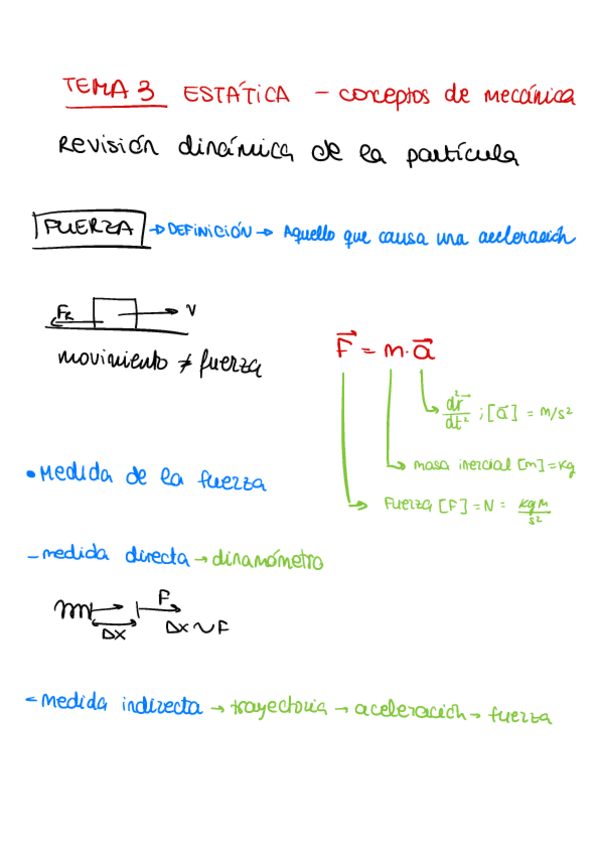 TEMA 3 ESTÁTICA - conceptos de mecánica
Revisión dinámica de la partícula
FUERZA → DEFINICIÓN → Aquello que causa una aceleración
FR V
movimiento ≠ fuerza
F⃗ = m·a⃗
d²r⃗/dt² ; [a⃗] = m/s²
masa inercial [m] = kg
Fuerza [F] = N = kg M/s²
• Medida de la fuerza
- medida directa → dinamómetro
F
Δx Δx ~ F
- medida indirecta → trayectoria → aceleración → fuerza